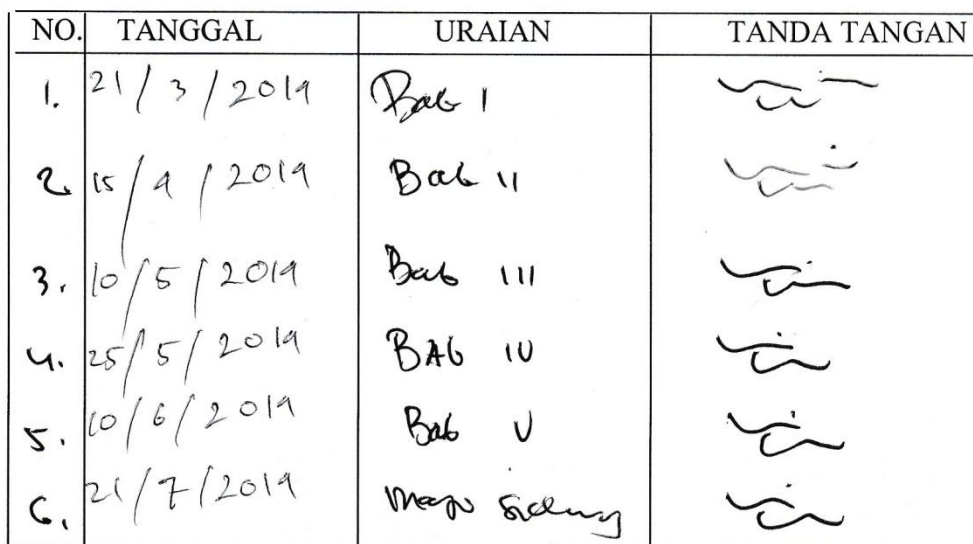 NO. TANGGAL URAIAN TANDA TANGAN
1. 21/3/2019 Bab I
2. 15/4/2019 Bab II
3. 10/5/2019 Bab III
4. 25/5/2019 BAb IV
5. 10/6/2019 Bab V
6. 21/7/2019 Maju Sidang